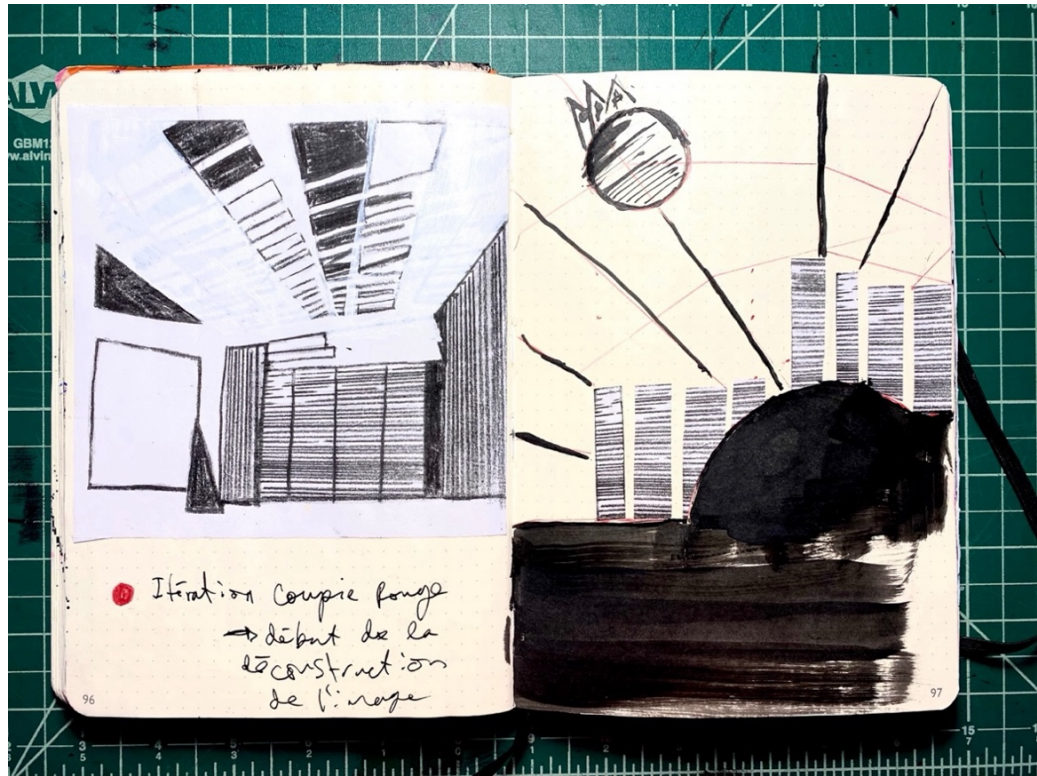 ALV
GBM1
w.alvin
Itération rouge
→ début de la
déconstruction
de l'image
96
97